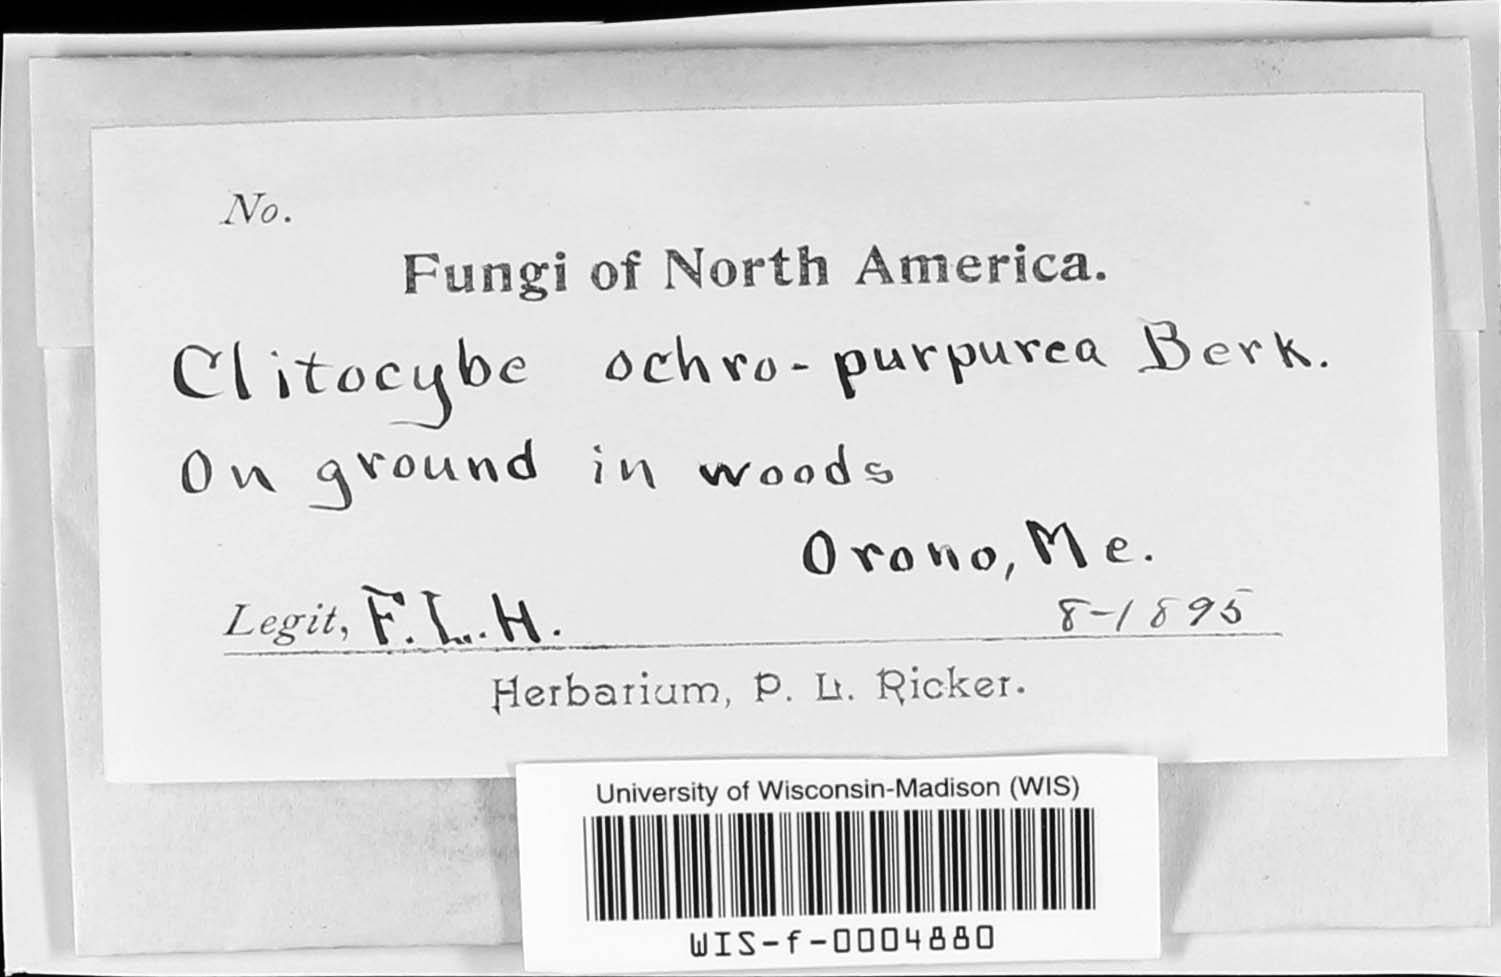 No.
Fungi of North America.
Clitocybe ochro-purpurea Berk.
On ground in woods
Orono, Me.
Legit, F. L. H. 8-1895
Herbarium, P. L. Ricker.
University of Wisconsin-Madison (WIS)
WIS-f-0004880